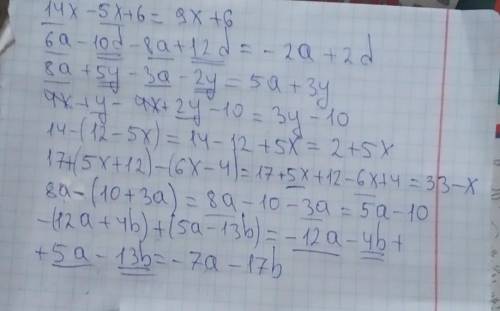 14x-5x+6=9x+6
6a-10d-8a+12d=-2a+2d
8a+5y-3a-2y=5a+3y
9x+y-9x+2y-10=3y-10
14-(12-5x)=14-12+5x=2+5x
17+(5x+12)-(6x-4)=17+5x+12-6x+4=33-x
8a-(10+3a)=8a-10-3a=5a-10
-(12a+4b)+(5a-13b)=-12a-4b+
+5a-13b=-7a-17b